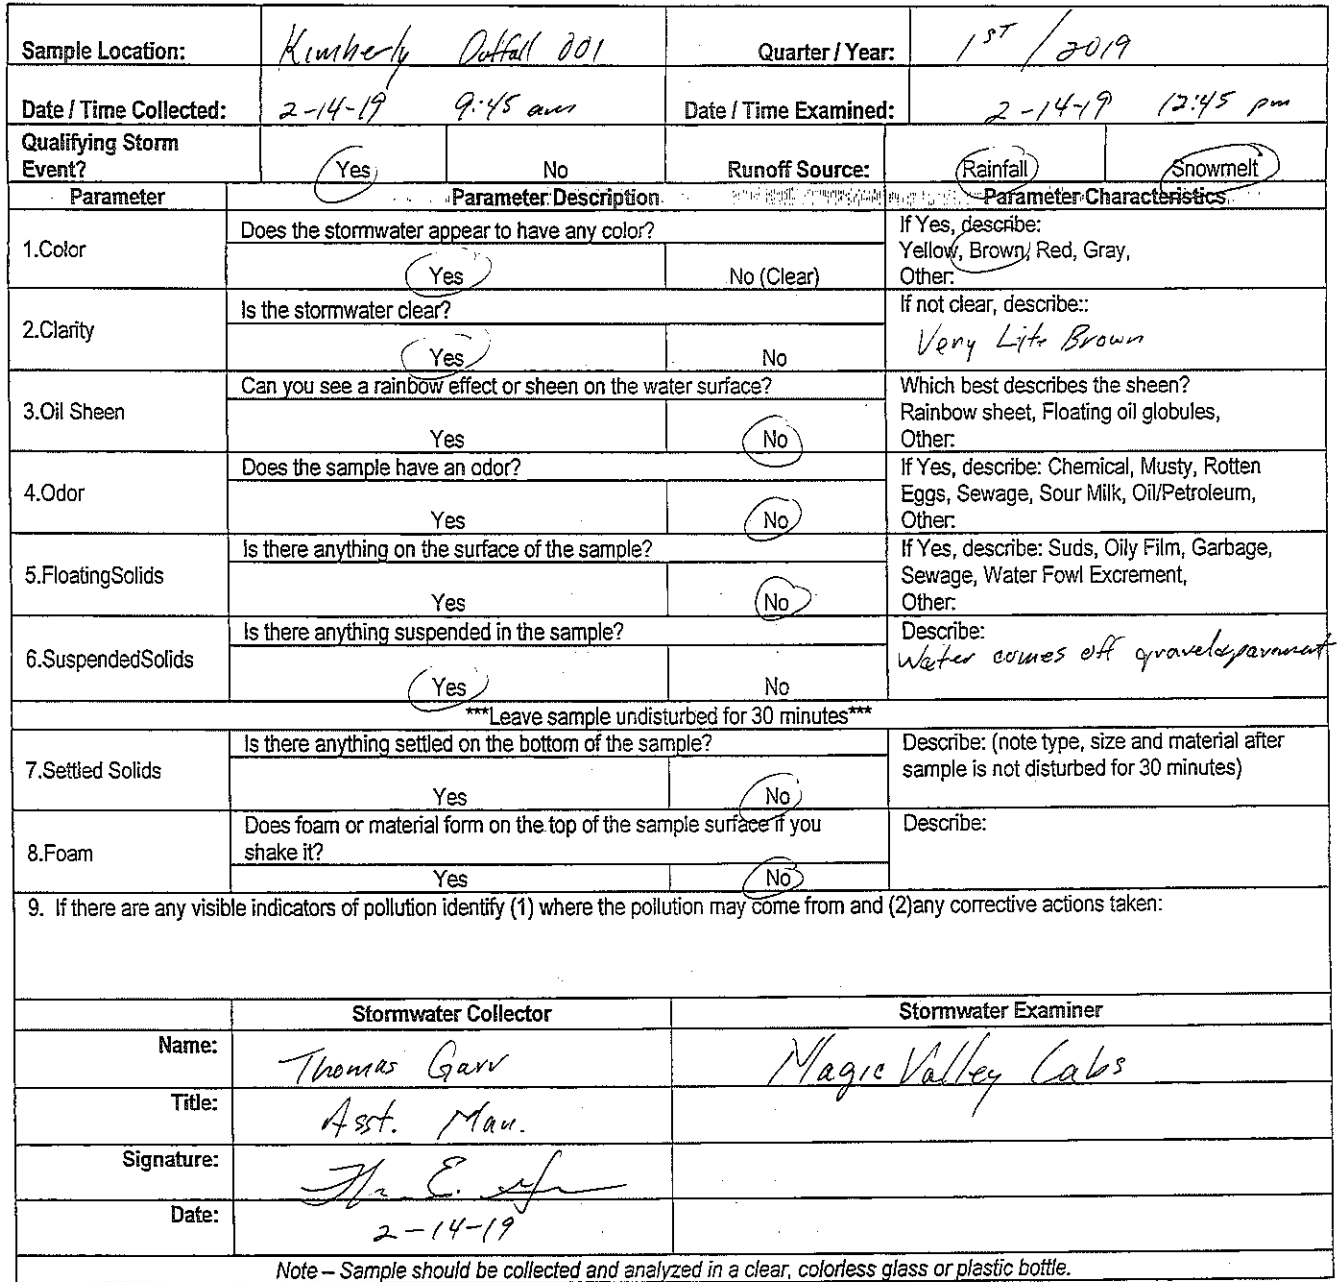 Sample Location: Kimberly Outfall 001 Quarter / Year: 1ST / 2019
Date / Time Collected: 2-14-19 9:45 am Date / Time Examined: 2-14-19 12:45 pm
Qualifying Storm
Event? Yes No Runoff Source: Rainfall Snowmelt
Parameter Parameter Description Parameter Characteristics
1.Color
Does the stormwater appear to have any color?
Yes No (Clear)
If Yes, describe:
Yellow, Brown, Red, Gray,
Other:
2.Clarity
Is the stormwater clear?
Yes No
If not clear, describe::
Very Lite Brown
3.Oil Sheen
Can you see a rainbow effect or sheen on the water surface?
Yes No
Which best describes the sheen?
Rainbow sheet, Floating oil globules,
Other:
4.Odor
Does the sample have an odor?
Yes No
If Yes, describe: Chemical, Musty, Rotten
Eggs, Sewage, Sour Milk, Oil/Petroleum,
Other:
5.FloatingSolids
Is there anything on the surface of the sample?
Yes No
If Yes, describe: Suds, Oily Film, Garbage,
Sewage, Water Fowl Excrement,
Other:
6.SuspendedSolids
Is there anything suspended in the sample?
Yes No
Describe:
Water comes off gravel &
***Leave sample undisturbed for 30 minutes***
7.Settled Solids
Is there anything settled on the bottom of the sample?
Yes No
Describe: (note type, size and material after
sample is not disturbed for 30 minutes)
8.Foam
Does foam or material form on the top of the sample surface if you
shake it?
Yes No
Describe:
9. If there are any visible indicators of pollution identify (1) where the pollution may come from and (2)any corrective actions taken:
Stormwater Collector Stormwater Examiner
Name: Thomas Garr Magic Valley Labs
Title: Asst. Man.
Signature:
Date: 2-14-19
Note – Sample should be collected and analyzed in a clear, colorless glass or plastic bottle.